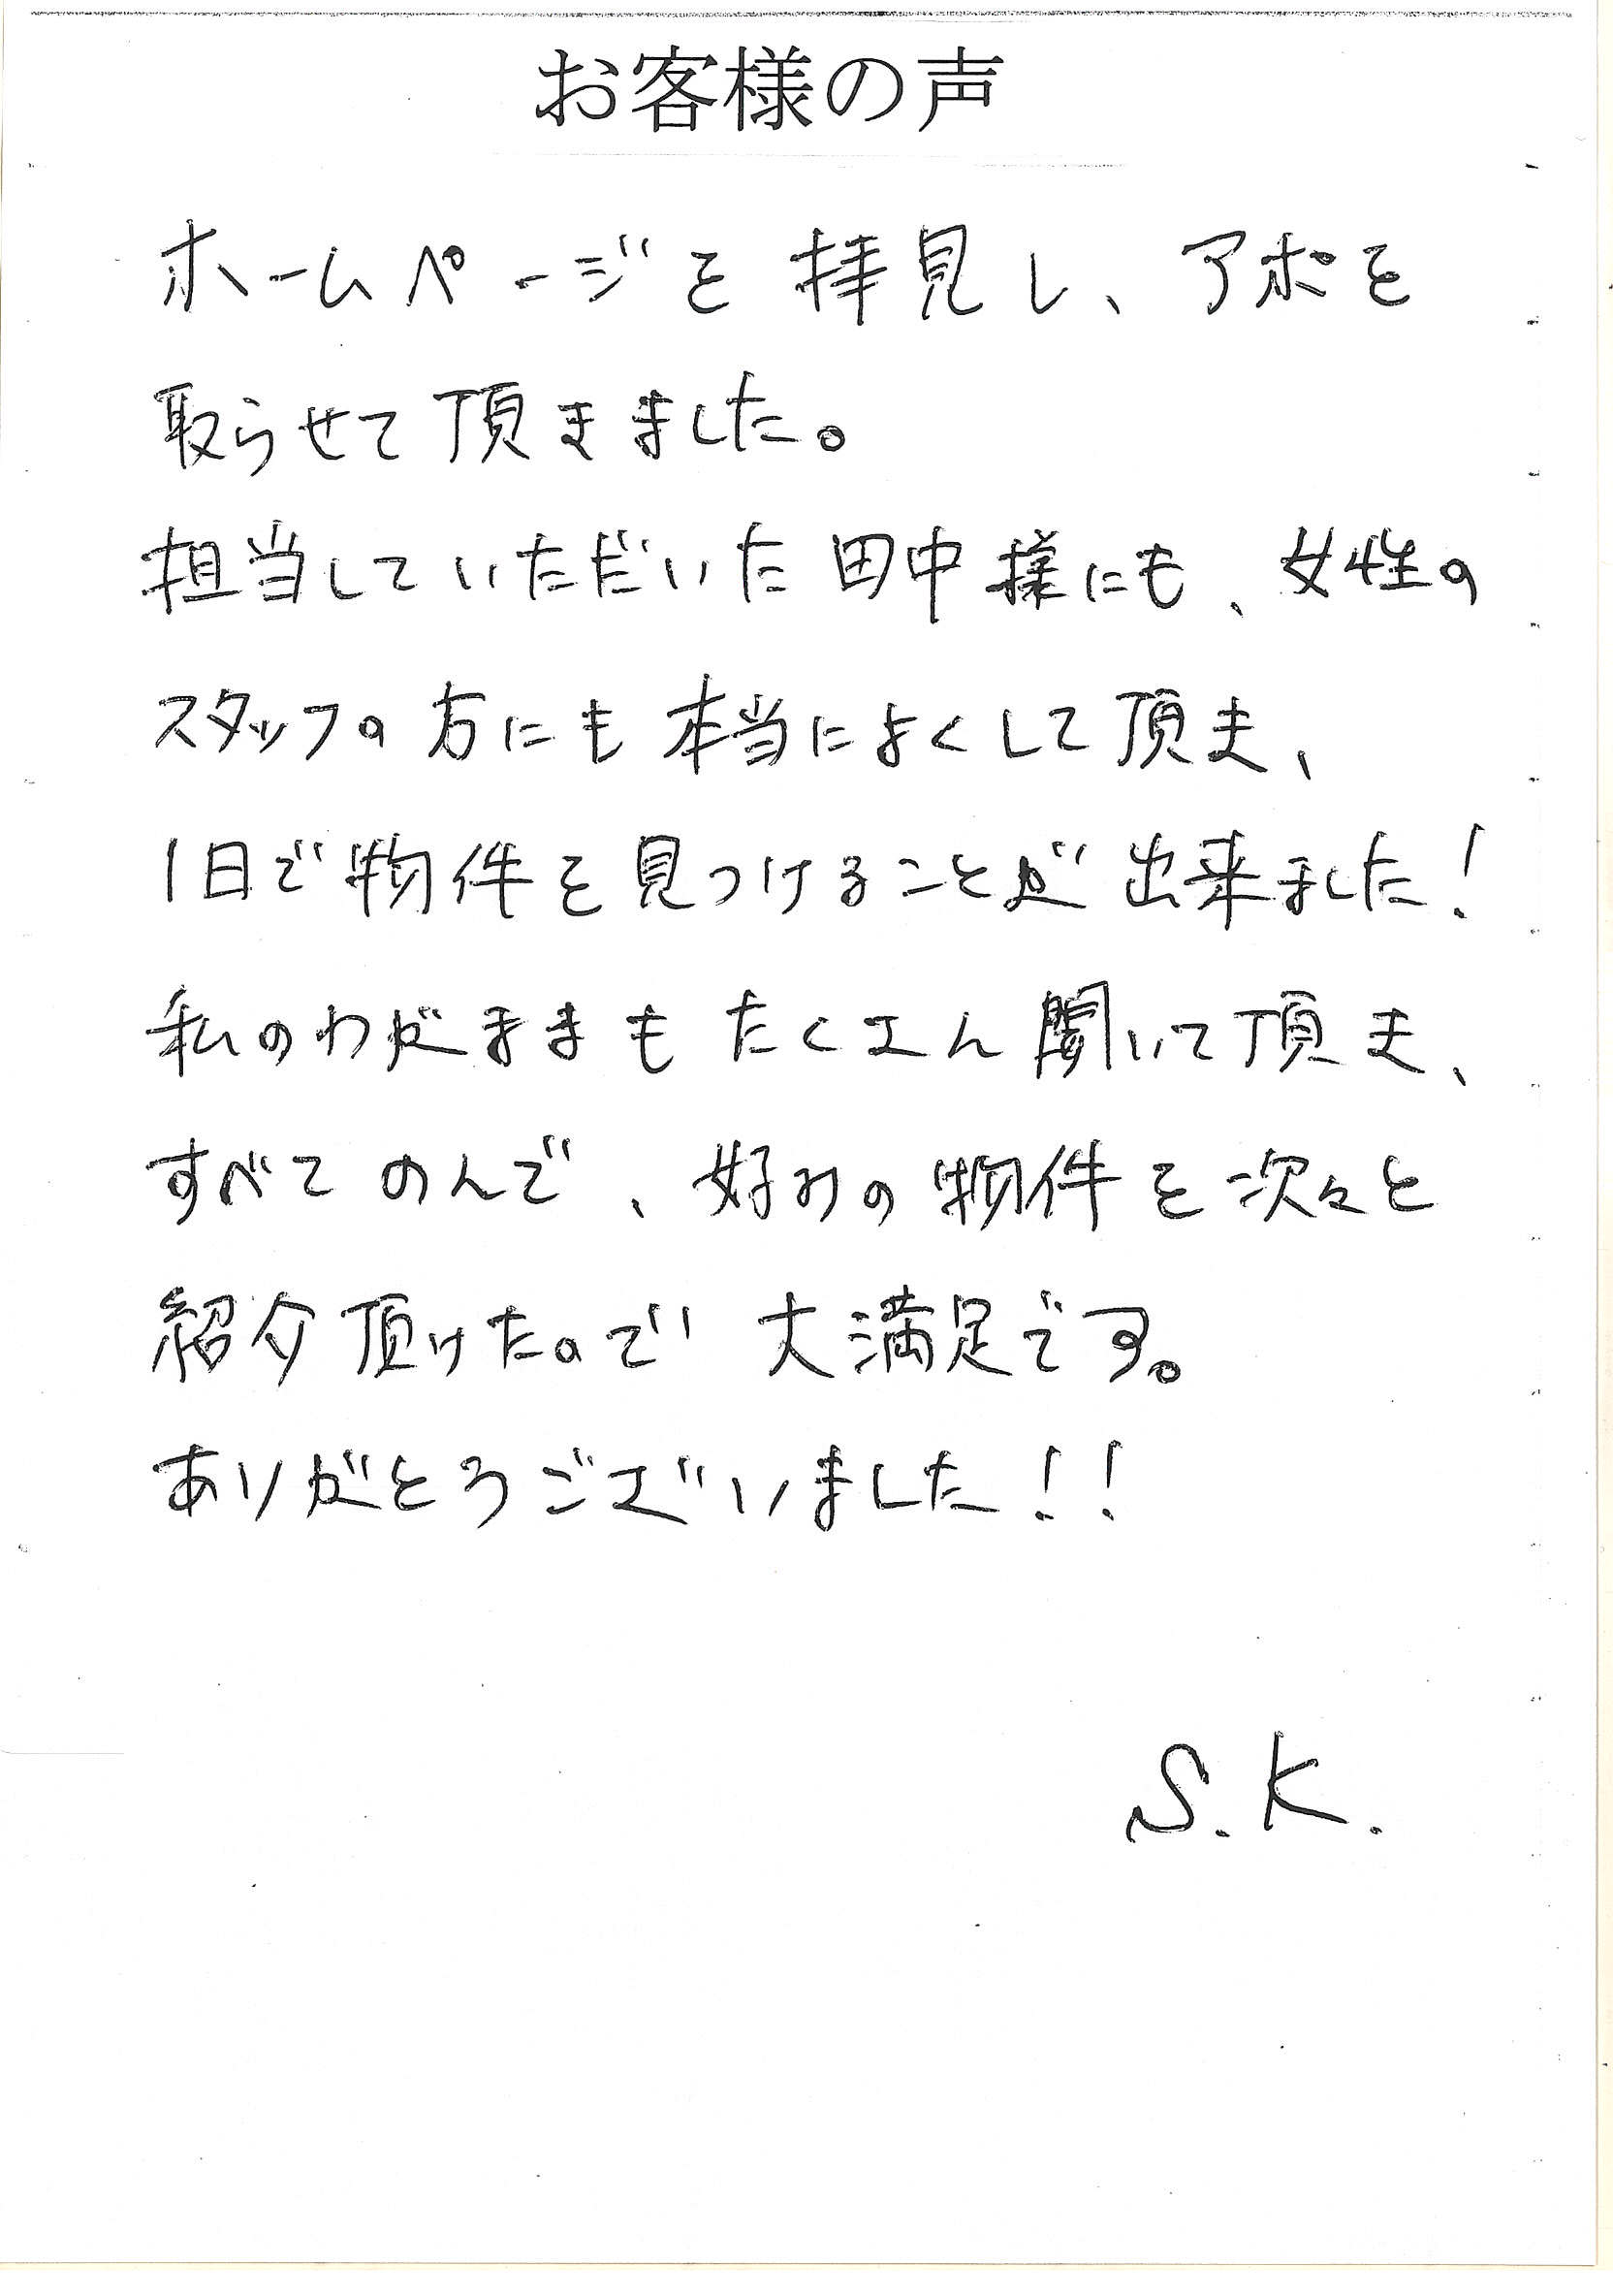 お客様の声
ホームページを拝見し、アポを
取らせて頂きました。
担当していただいた田中様にも、女性の
スタッフの方にも本当によくして頂き、
1日で物件を見つけることが出来ました!
私のわがままもたくさん聞いて頂き、
すべてのんで、好みの物件を次々と
紹介頂けたので大満足です。
ありがとうございました!!
S.K.